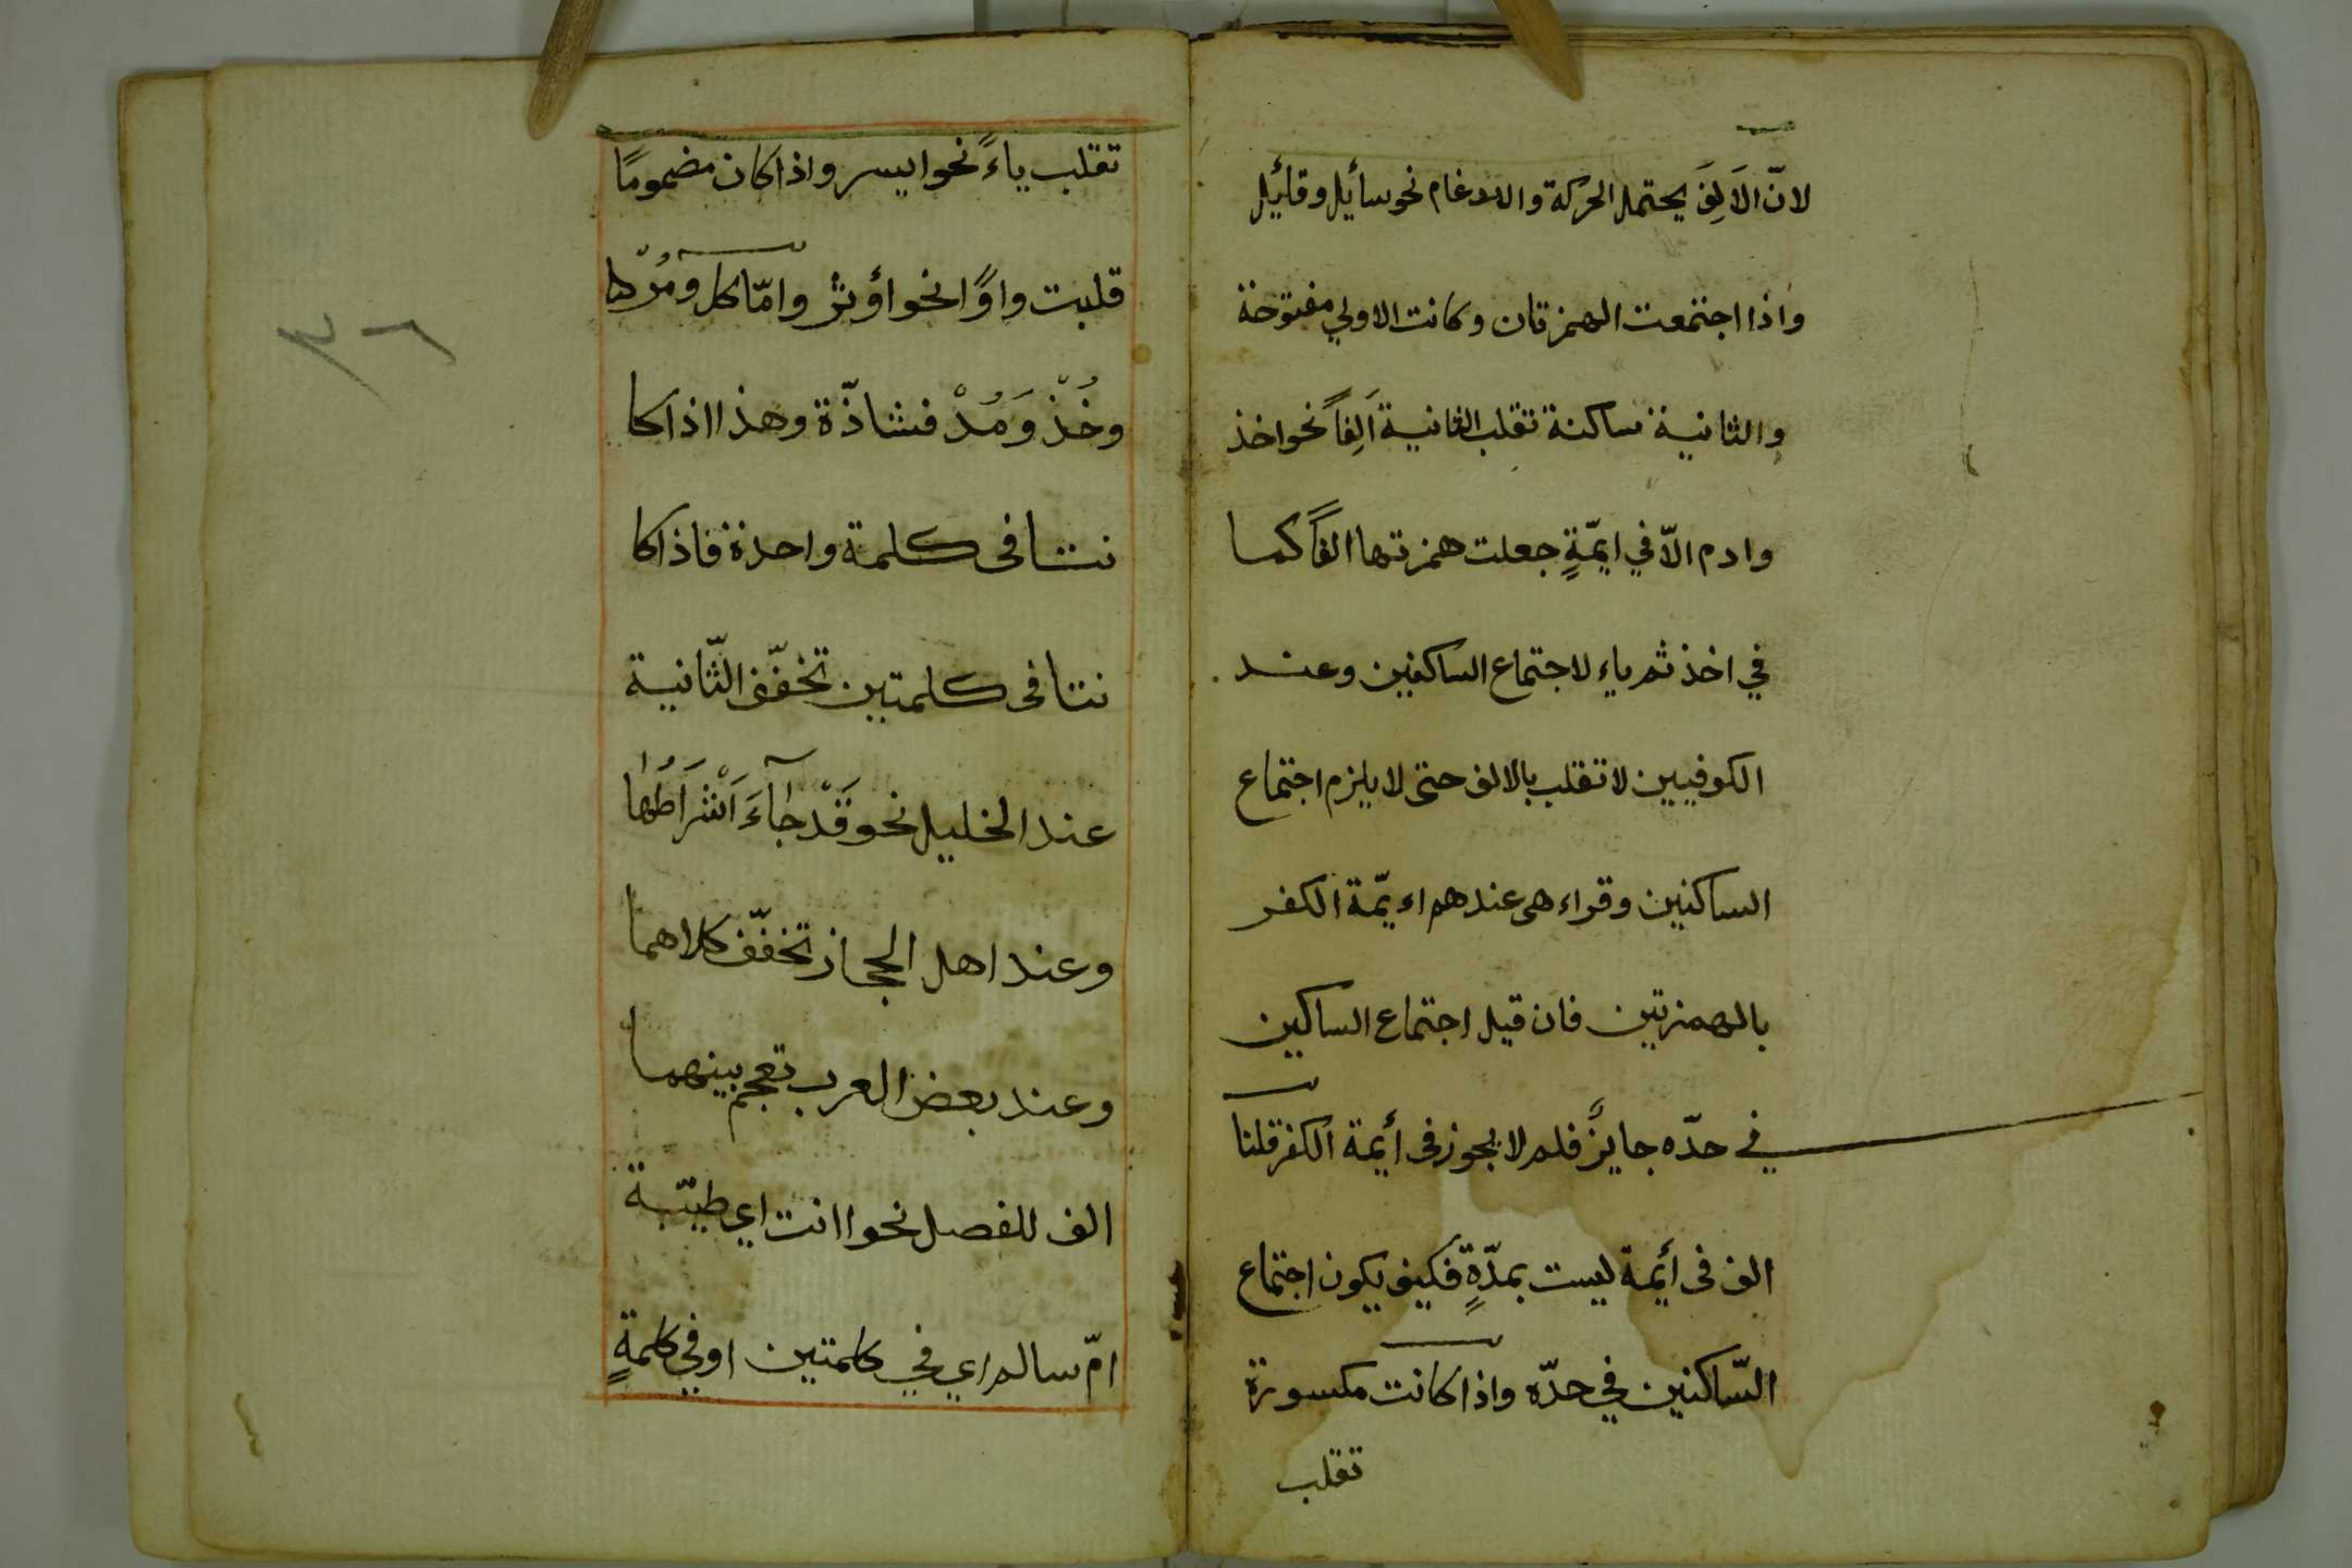 لانّ الاَلِفَ يحتمل الحركة والادغام نحو سأيل وقائل
واذا اجتمعت الهمزتان وكانت الاولي مفتوحة
والثانية ساكنة تقلب الثانية اَلِفاً نحو اخذ
وادم الاّ في ايمّةٍ جعلت همزتها الفاً كما
في اخذ ثم ياء لاجتماع الساكنين وعند
الكوفيين لا تقلب بالالف حتى لا يلزم اجتماع
الساكنين وقراء هى عندهم اءيمّة الكفر
بالهمزتين فان قيل اجتماع الساكين
في حدّه جايزٌ فلم لا يجوز فى أيمة الكفر قلنا
الف فى أيمة ليست بمدّةٍ فكيف يكون اجتماع
السّاكنين في حدّه واذا كانت مكسورة
تقلب
تقلب ياءً نحو ايسر واذا كان مضمومًا
قلبت واوًا نحو اؤثر وامّا كل ومُرْ كا
وخُذْ وَمُدْ فشاذّة وهذا اذا كا
نتا فى كلمة واحدة فاذا كا
نتا فى كلمتين تخفّف الثّانية
عند الخليل نحو قَدْ جَآءَ اَشْرَاطُها
وعند اهل الحجاز تخفّف كلاهما
وعند بعض العرب تقحم بينهما
الف للفصل نحو اانت اي طيّبة
امّ سالم اي في كلمتين او في كلمةٍ
٣٦